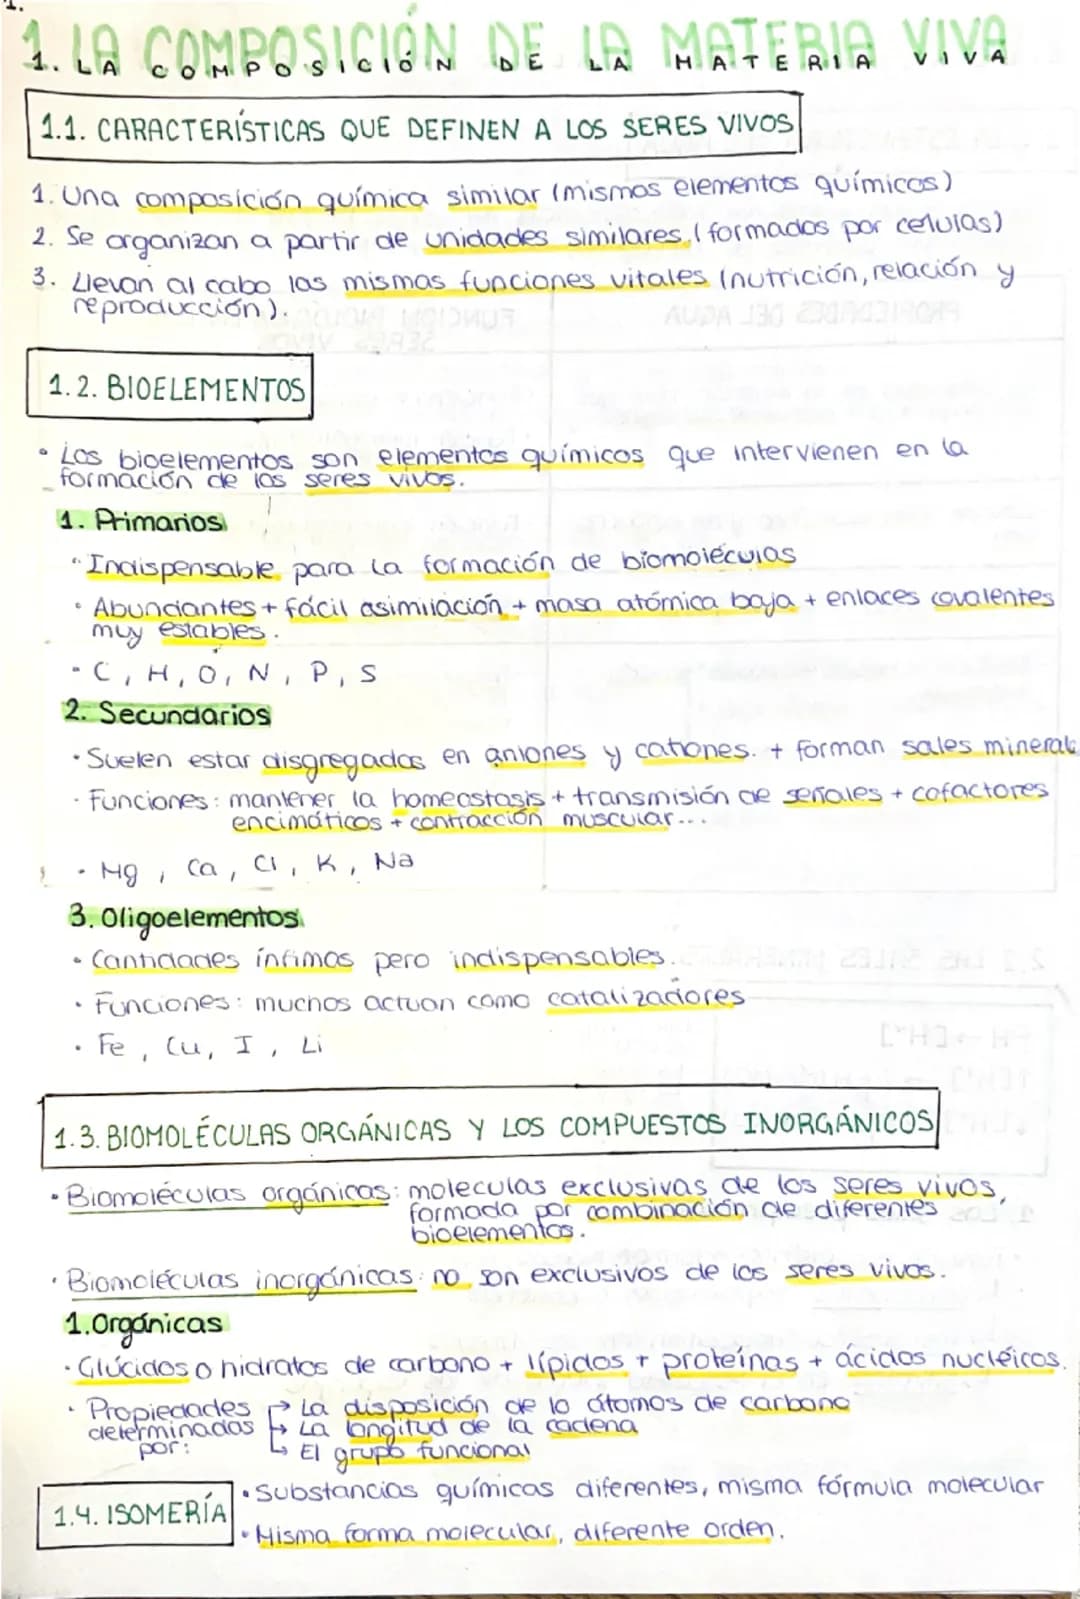 1.
1. LA COMPOSICIÓN DE LA MATERIA VIVA
1. LA COMPOSICIÓN DE LA MATERIA VIVA
1.1. CARACTERÍSTICAS QUE DEFINEN A LOS SERES VIVOS
1. Una composición química similar (mismos elementos químicos)
2. Se organizan a partir de unidades similares (formados por celulas)
3. Llevan al cabo las mismas funciones vitales (nutrición, relación y
reproducción).
1.2. BIOELEMENTOS
• Los bioelementos son elementos químicos que intervienen en la
formación de los seres vivos.
1. Primarios
• Indispensable para la formación de biomoléculas
• Abundantes + fácil asimilación + masa atómica baja + enlaces covalentes
muy estables.
• C, H, O, N, P, S
2. Secundarios
• Suelen estar disgregados en aniones y cationes. + forman sales mineral
• Funciones: mantener la homeostasis + transmisión de señales + cofactores
encimáticos + contracción muscular...
• Mg, Ca, Cl, K, Na
3. Oligoelementos
• Cantidades ínfimas pero indispensables.
• Funciones: muchos actuan como catalizadores
• Fe, Cu, I, Li
1.3. BIOMOLÉCULAS ORGÁNICAS Y LOS COMPUESTOS INORGÁNICOS
• Biomoléculas orgánicas: moleculas exclusivas de los seres vivos,
formada por combinación de diferentes
bioelementos.
• Biomoléculas inorgánicas: no son exclusivos de los seres vivos.
1. Orgánicas
• Glúcidos o hidratos de carbono + lípidos + proteínas + ácidos nucléicos.
• Propiedades → La disposición de lo átomos de carbono
determinadas → La longitud de la cadena
por: → El grupo funcional
1.4. ISOMERÍA • Substancias químicas diferentes, misma fórmula molecular
• Misma forma molecular, diferente orden.